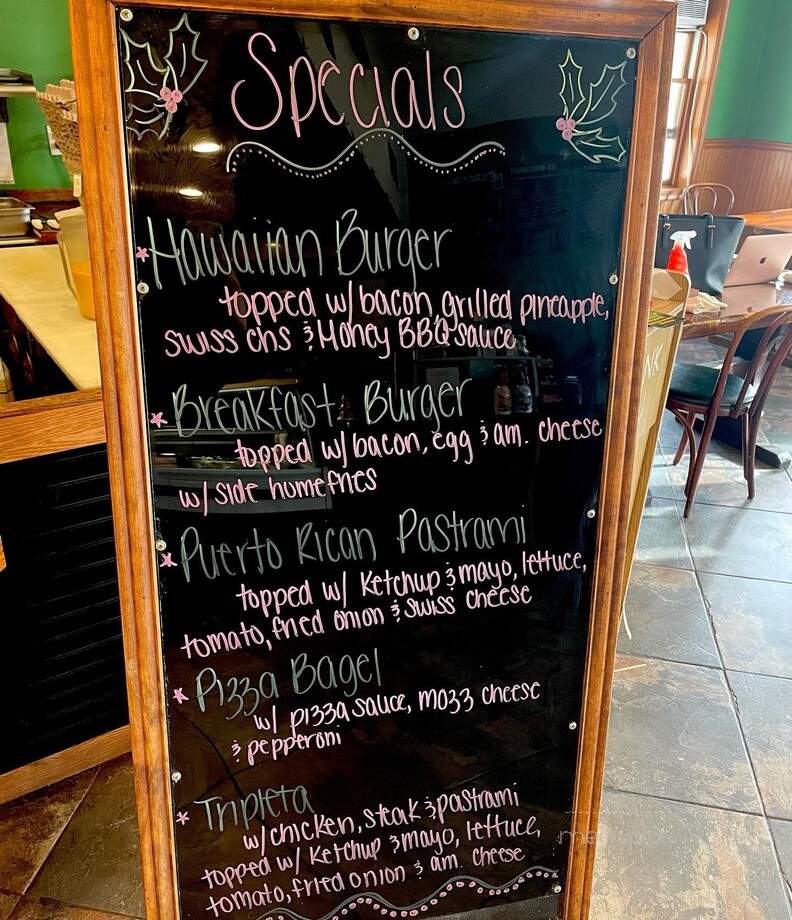 Specials
Hawaiian Burger
topped w/ bacon, grilled pineapple,
swiss chs & Honey BBQ sauce
Breakfast Burger
topped w/ bacon, egg & am. cheese
w/ side homefries
Puerto Rican Pastrami
topped w/ Ketchup & mayo, lettuce,
tomato, fried onion & swiss cheese
Pizza Bagel
w/ pizza sauce, mozz cheese
& pepperoni
Tripleta
w/ chicken, steak & pastrami
topped w/ Ketchup & mayo, lettuce,
tomato, fried onion & am. cheese